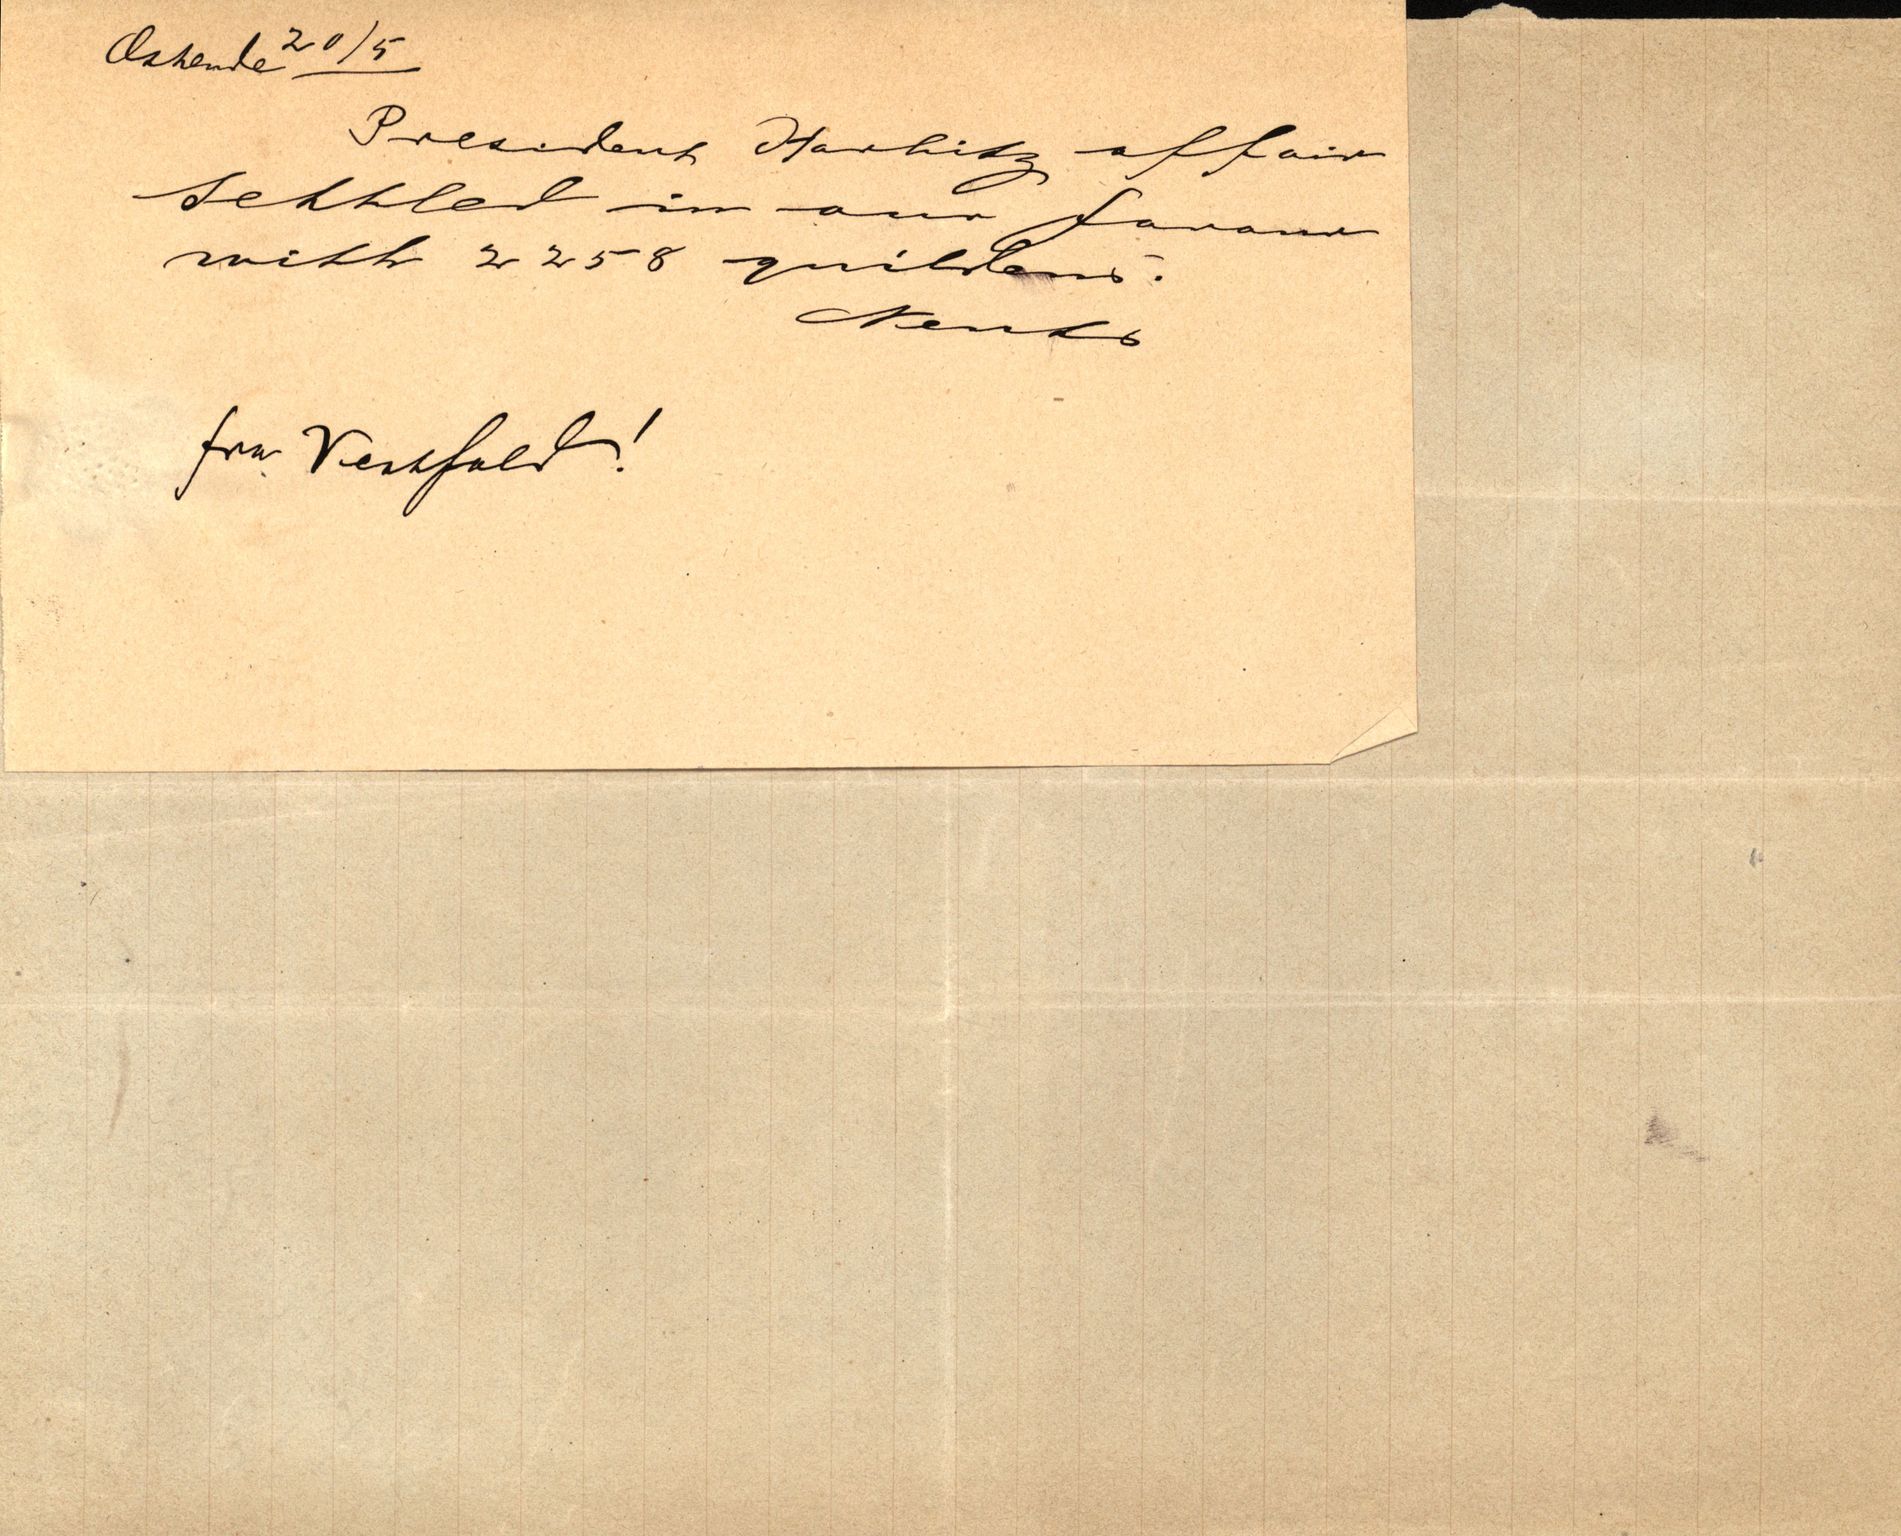 Ostende 20/5
President Harbitz affair
settled in our favour
with 2258 guildens.
fra Vestfold!